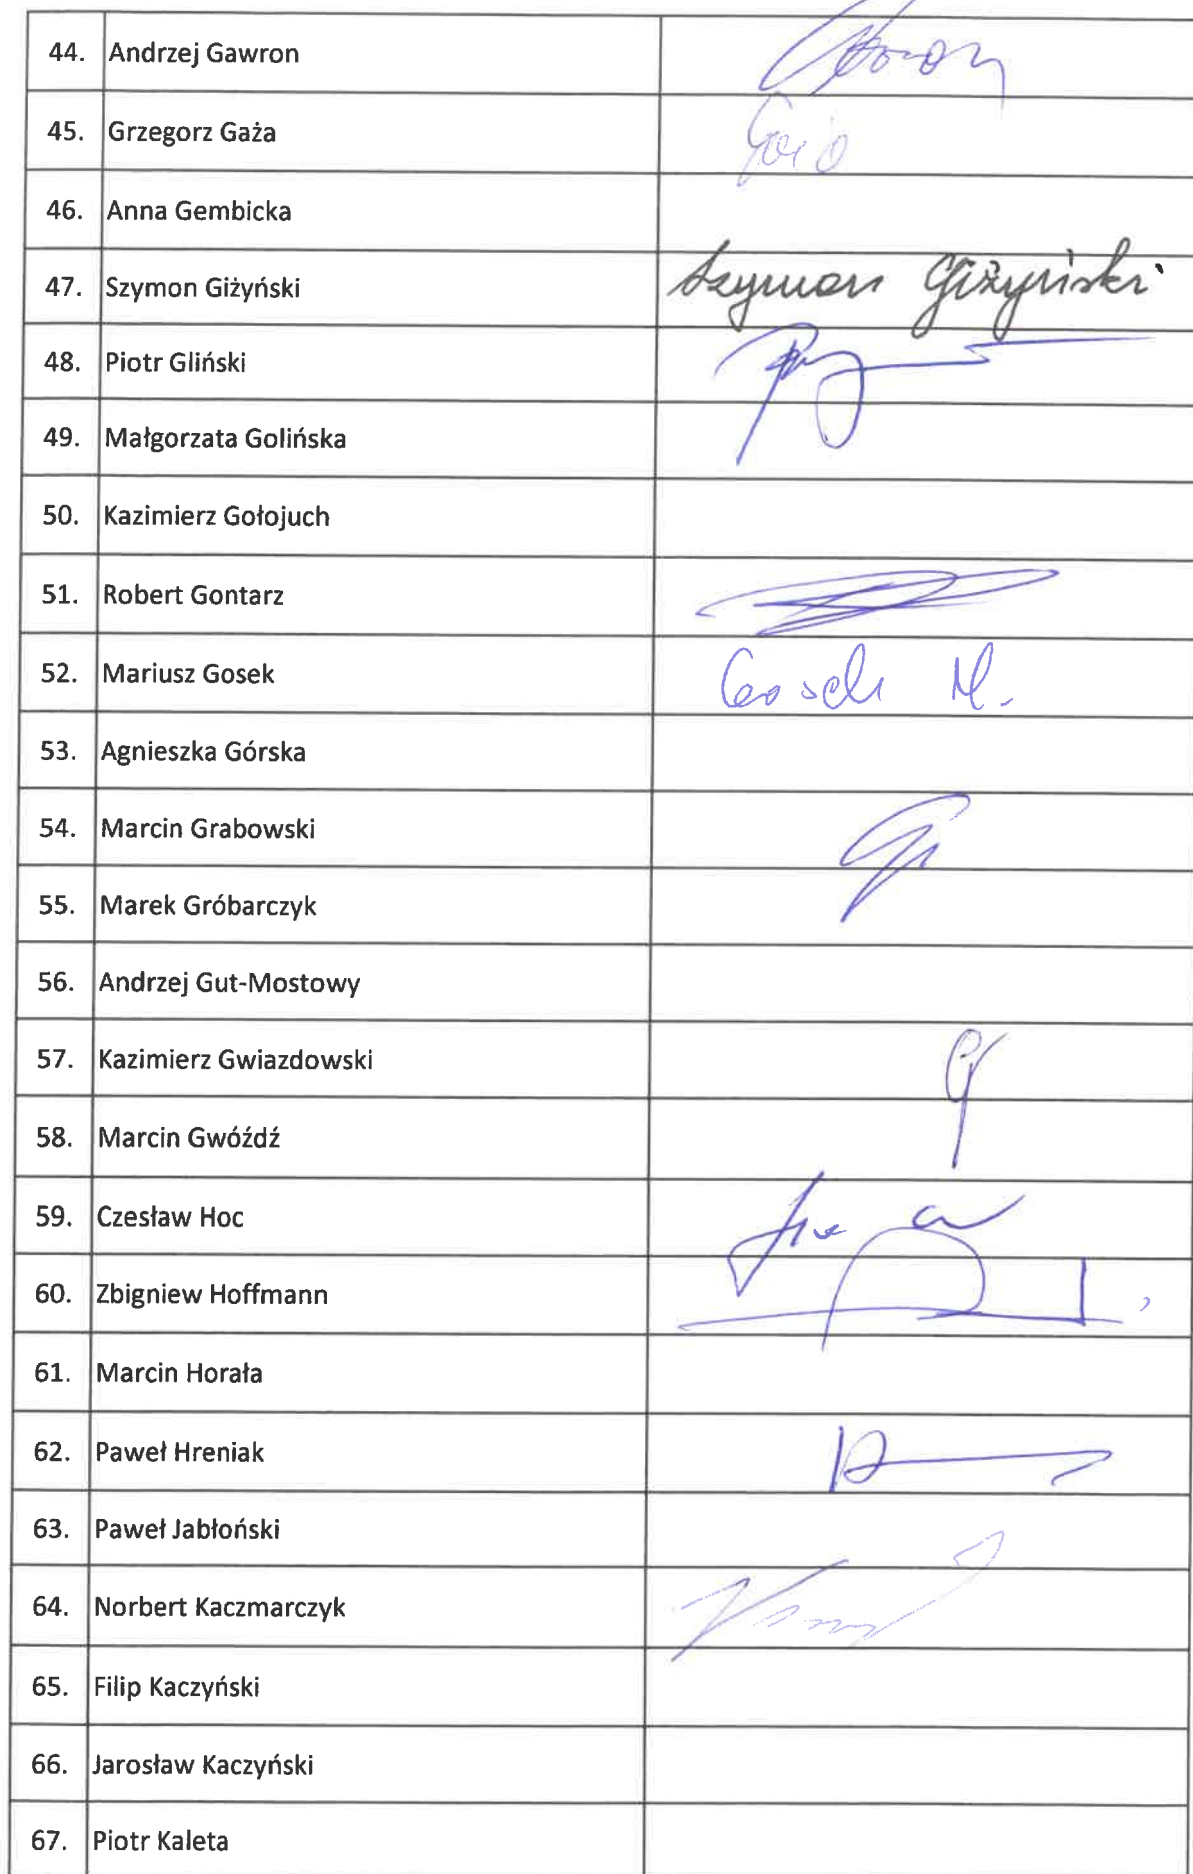 44. Andrzej Gawron
45. Grzegorz Gaża
46. Anna Gembicka
47. Szymon Giżyński Szymon Giżyński
48. Piotr Gliński
49. Małgorzata Golińska
50. Kazimierz Gołojuch
51. Robert Gontarz
52. Mariusz Gosek Gosek M.
53. Agnieszka Górska
54. Marcin Grabowski
55. Marek Gróbarczyk
56. Andrzej Gut-Mostowy
57. Kazimierz Gwiazdowski
58. Marcin Gwóźdź
59. Czesław Hoc
60. Zbigniew Hoffmann
61. Marcin Horała
62. Paweł Hreniak
63. Paweł Jabłoński
64. Norbert Kaczmarczyk
65. Filip Kaczyński
66. Jarosław Kaczyński
67. Piotr Kaleta